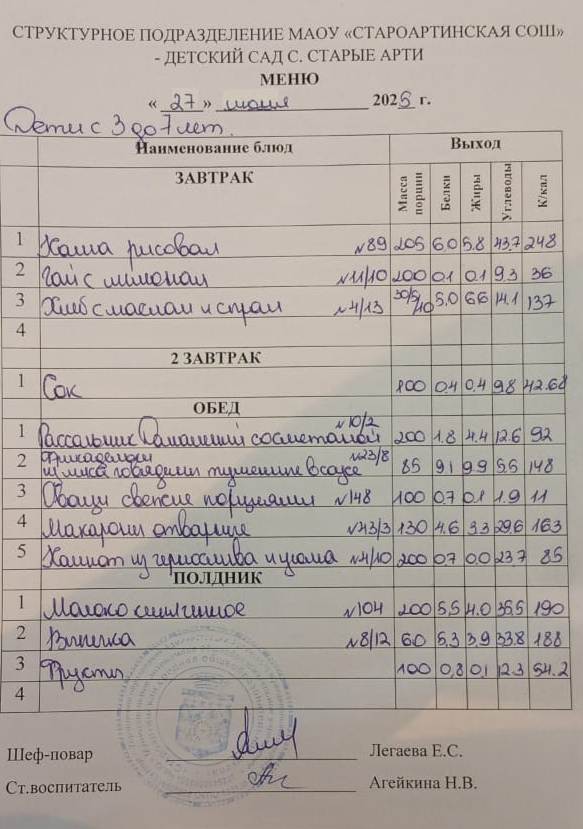 СТРУКТУРНОЕ ПОДРАЗДЕЛЕНИЕ МАОУ «СТАРОАРТИНСКАЯ СОШ»
- ДЕТСКИЙ САД С. СТАРЫЕ АРТИ
МЕНЮ
« 27 » июня 2025 г.
Дети с 3 до 7 лет.
Наименование блюд Выход
ЗАВТРАК Масса порции Белки Жиры Углеводы К/кал
1 Каша рисовая №89 205 6.0 5.8 43.7 248
2 Чай с лимоном №11/10 200 0.1 0.1 9.3 36
3 Хлеб с маслом и сыром №4/13 30/5/10 5.0 6.6 14.1 137
4
2 ЗАВТРАК
1 Сок 100 0.4 0.4 9.8 42.68
ОБЕД
1 Рассольник Домашний со сметаной №10/2 200 1.8 4.4 12.6 92
2 Фрикадельки №23/8
из мяса говядины тушеные в соусе 85 9.1 9.9 5.5 148
3 Овощи свежие порциями №148 100 0.7 0.1 1.9 11
4 Макароны отварные №43/3 130 4.6 3.3 29.6 163
5 Компот из чернослива и изюма №4/10 200 0.7 0.0 23.7 85
ПОЛДНИК
1 Молоко сгущенное №104 200 5.5 4.0 35.5 190
2 Выпечка №8/12 60 5.3 3.9 33.8 188
3 Фрукты 100 0,8 0,1 12.3 54.2
4
Шеф-повар Легаева Е.С.
Ст.воспитатель Агейкина Н.В.